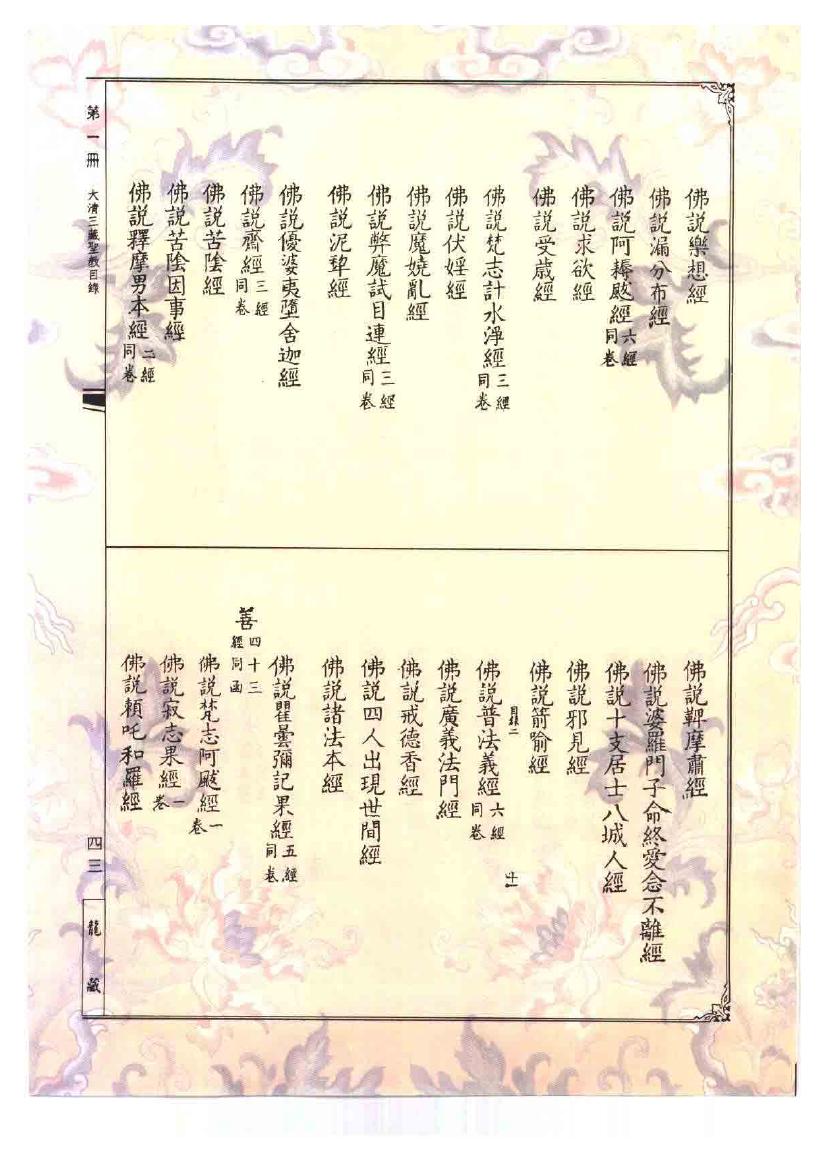 佛說樂想經
佛說漏分布經
佛說阿耨颰經六經同卷
佛說求欲經
佛說受歲經
佛說梵志計水淨經三經同卷
佛說伏婬經
佛說魔嬈亂經
佛說弊魔試目連經三經同卷
佛說泥犂經
佛說優婆夷墮舍迦經
佛說齋經三經同卷
佛說苦陰經
佛說苦陰因事經
佛說釋摩男本經二經同卷
佛說鞞摩肅經
佛說婆羅門子命終愛念不離經
佛說十支居士八城人經
佛說邪見經
佛說箭喻經
目錄二
佛說普法義經六經同卷
佛說廣義法門經
佛說戒德香經
佛說四人出現世間經
佛說諸法本經
佛說瞿曇彌記果經五經同卷
善四十三經同函
佛說梵志阿颰經一卷
佛說寂志果經一卷
佛說賴吒和羅經
第一冊 大清三藏聖教目錄
四三
龍藏